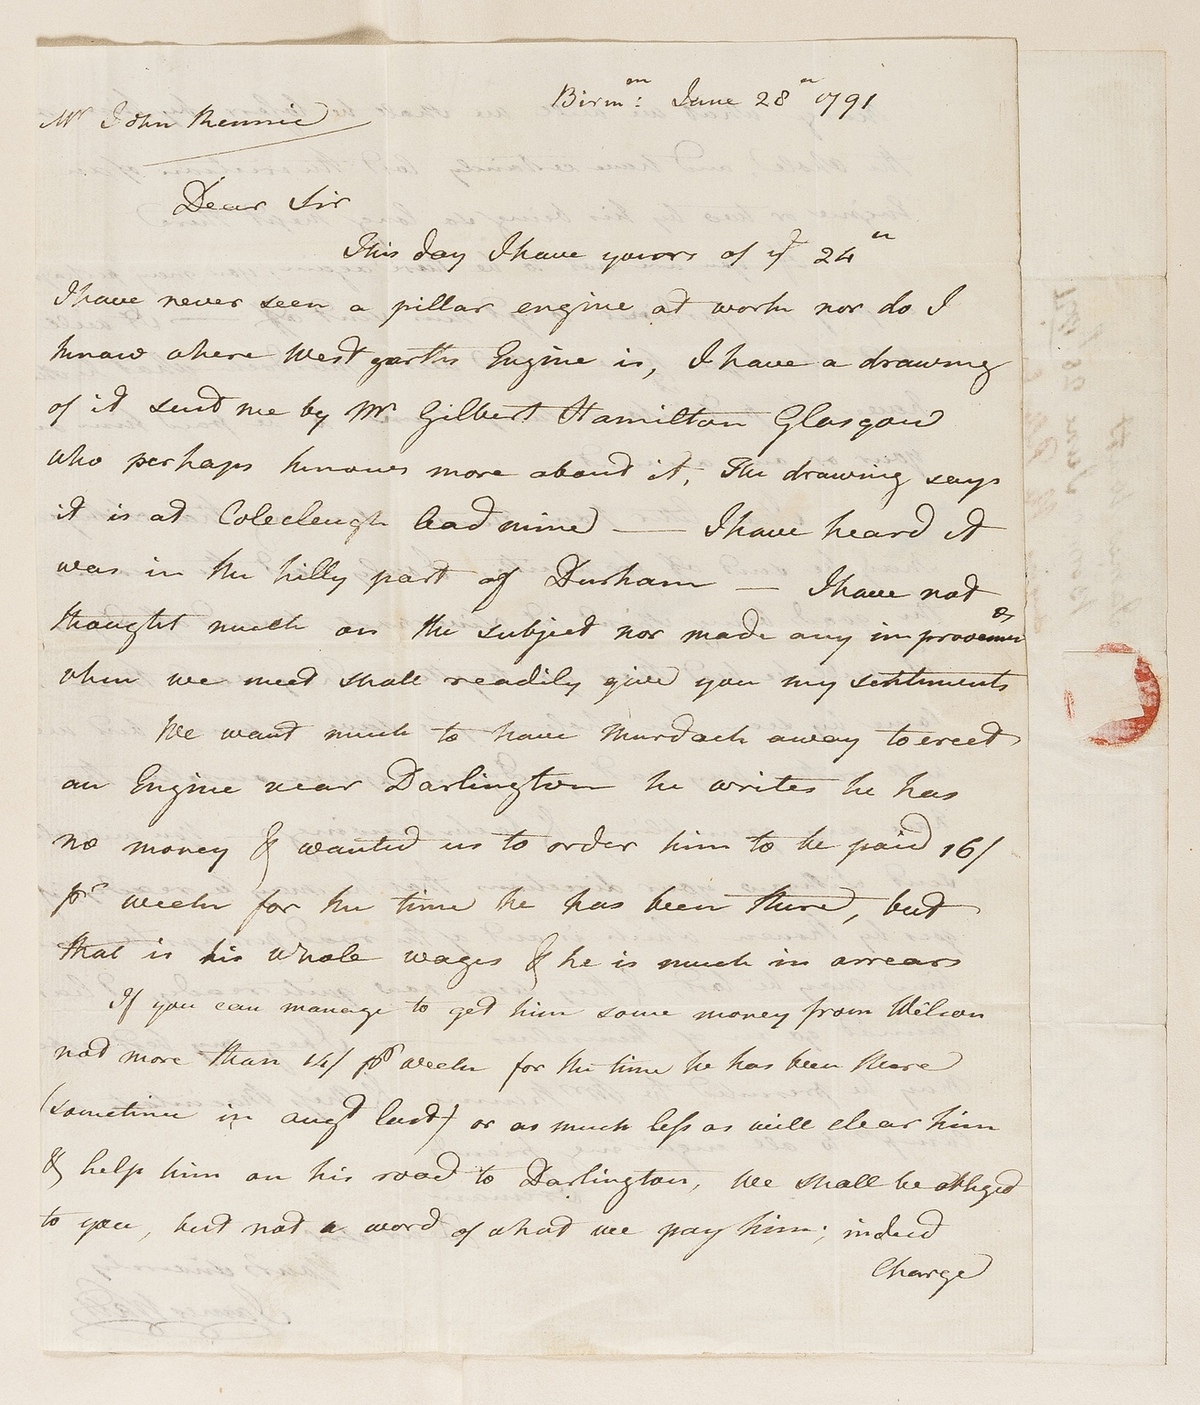 Birmm: June 28th 1791
Mr John Rennie
Dear Sir
This day I have yours of ye 24th
I have never seen a pillar engine at work nor do I
know where Westgarths Engine is, I have a drawing
of it sent me by Mr Gilbert Hamilton Glasgow
who perhaps knows more about it, The drawing says
it is at Colecleugh lead mine — I have heard it
was in the hilly part of Durham — I have not
thought much on the subject nor made any improvemts
when we meet shall readily give you my sentiments
We want much to have Murdoch away to erect
an Engine near Darlington he writes he has
no money & wanted us to order him to be paid 16/
pr week for the time he has been there, but
that is his whole wages & he is much in arrears
If you can manage to get him some money from Wilson
not more than 14/ pr week for the time he has been there
(sometime in augt last) or as much less as will clear him
& help him on his road to Darlington, We shall be obliged
to you, but not a word of what we pay him; indeed
Charge